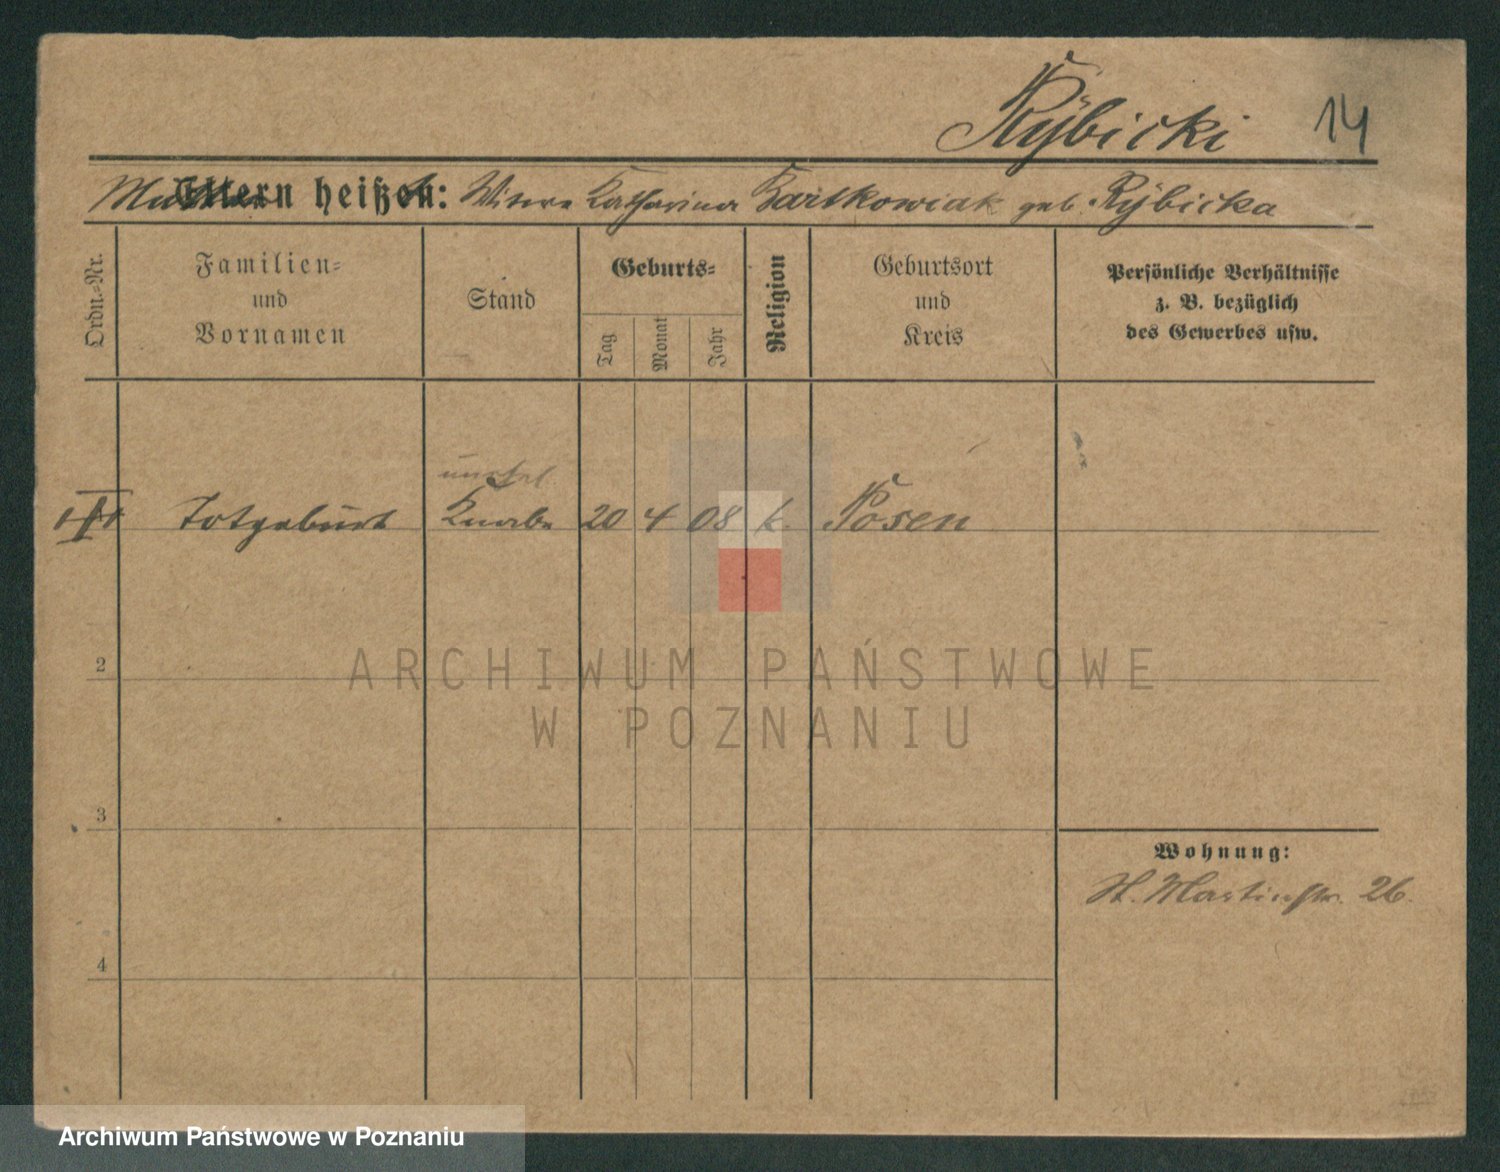 Rybicki 14
Mutter Eltern heißen: Witwe Katharina Bartkowiak geb. Rybicka
Ordn.-Nr.
Familien-
und
Vornamen
Stand
Geburts-
Tag
Monat
Jahr
Religion
Geburtsort
und
Kreis
Persönliche Verhältnisse
z. B. bezüglich
des Gewerbes usw.
unehel.
Totgeburt Knabe 20 4 08 k. Posen
2
ARCHIWUM PAŃSTWOWE
W POZNANIU
3
Wohnung:
St. Martinstr. 26.
4
Archiwum Państwowe w Poznaniu